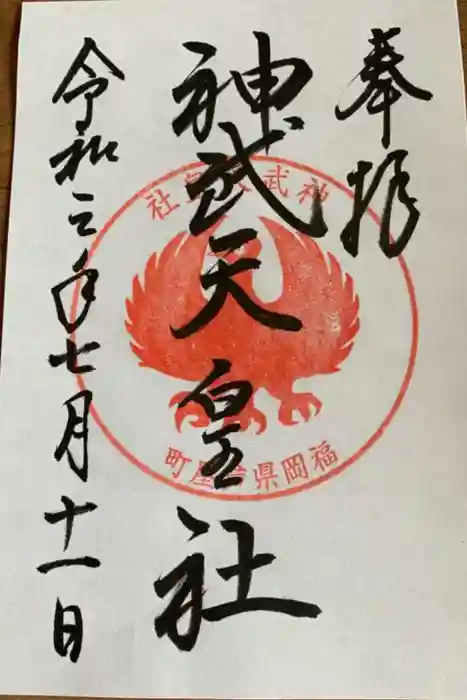 奉拝
神武天皇社
令和三年七月十一日
神武天皇社
福岡県芦屋町